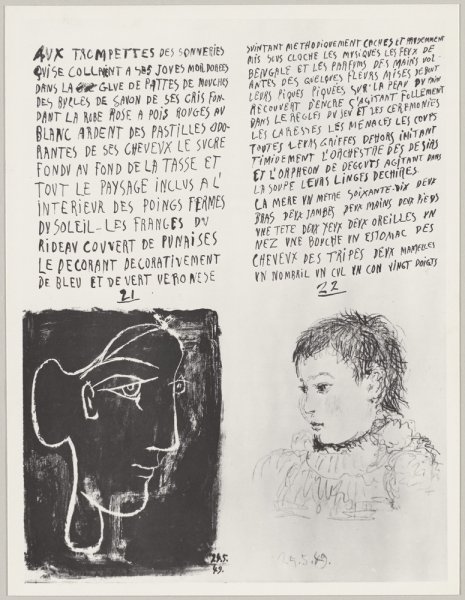 AUX TROMPETTES DES SONNERIES
QUI SE COLLENT A SES JOUES MORDOREES
DANS LA GLUE DE PATTES DE MOUCHES
DES BULLES DE SAVON DE SES CRIS FON-
DANT LA ROBE ROSE A POIS ROUGES AU
BLANC ARDENT DES PASTILLES ODO-
RANTES DE SES CHEVEUX LE SUCRE
FONDU AU FOND DE LA TASSE ET
TOUT LE PAYSAGE INCLUS A L'
INTERIEUR DES POINGS FERMES
DU SOLEIL - LES FRANGES DU
RIDEAU COUVERT DE PUNAISES
LE DECORANT DECORATIVEMENT
DE BLEU ET DE VERT VERONESE
21
SUINTANT METHODIQUEMENT CACHES ET
MIS SOUS CLOCHE LES MUSIQUES LES FEUX DE
BENGALE ET LES PARFUMS DES MAINS VOL-
ANTES DES QUELQUES FLEURS MISES DEBOUT
LEURS PIQUES PIQUÉES SUR LA PEAU DU PAIN
RECOUVERT D'ENCRE S'AGITENT FOLLEMENT
DANS LE REGLES DU JEU ET LES CEREMONIES
LES CARESSES LES MENACES LES COUPS
TOUTES LEURS GRIFFES DEHORS IMITANT
TIMIDEMENT L'ORCHESTRE DES DESIRS
ET L'ORPHEON DE DEGOUTS AGITANT DANS
LA SOUPE LEURS LINGES DECHIRES.
LA MERE UN METRE SOIXANTE-DIX DEUX
BRAS DEUX JAMBES DEUX MAINS DEUX PIEDS
UNE TETE DEUX YEUX DEUX OREILLES UN
NEZ UNE BOUCHE UN ESTOMAC DES
CHEVEUX DES TRIPES DEUX MAMELLES
UN NOMBRIL UN CUL UN CON VINGT DOIGTS
22
29.5.
49.
29.5.49.